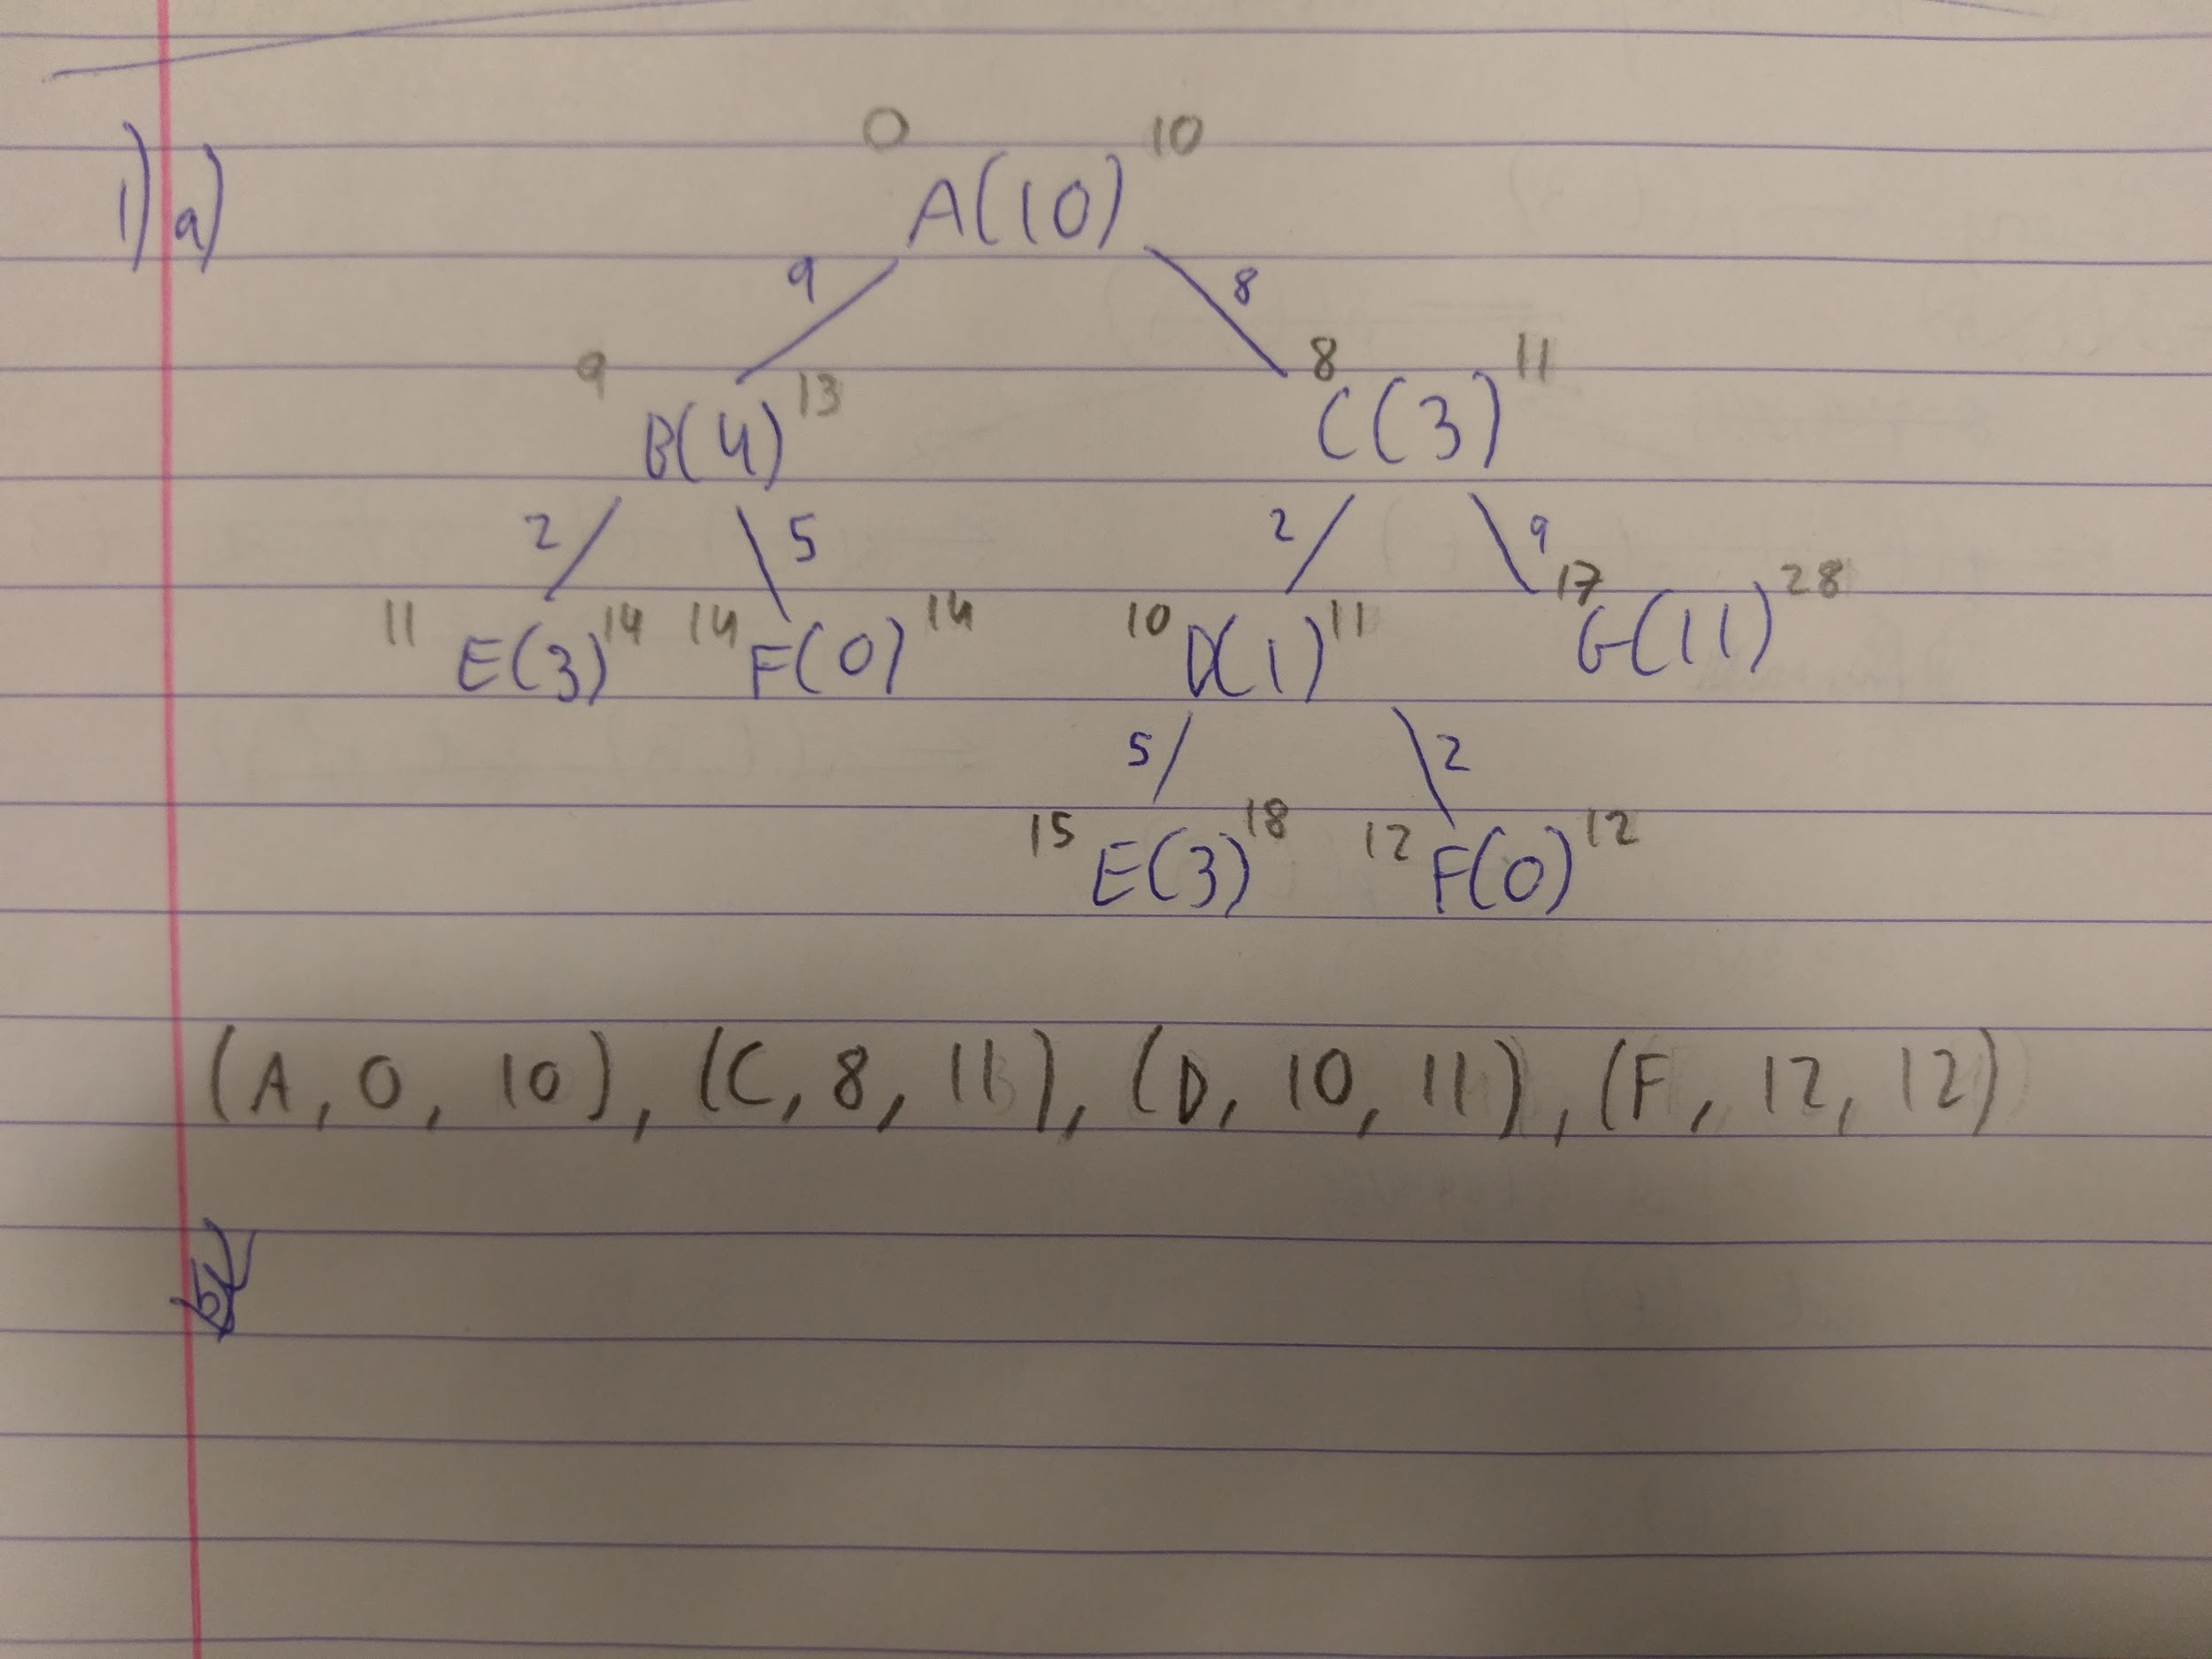 1) a)
0 10
A(10)
9 8
9 13 8 11
B(4) C(3)
2 5 2 9
11 E(3) 14 14 F(0) 14 10 D(1) 11 17 G(11) 28
5 2
15 E(3) 18 12 F(0) 12
(A, 0, 10), (C, 8, 11), (D, 10, 11), (F, 12, 12)